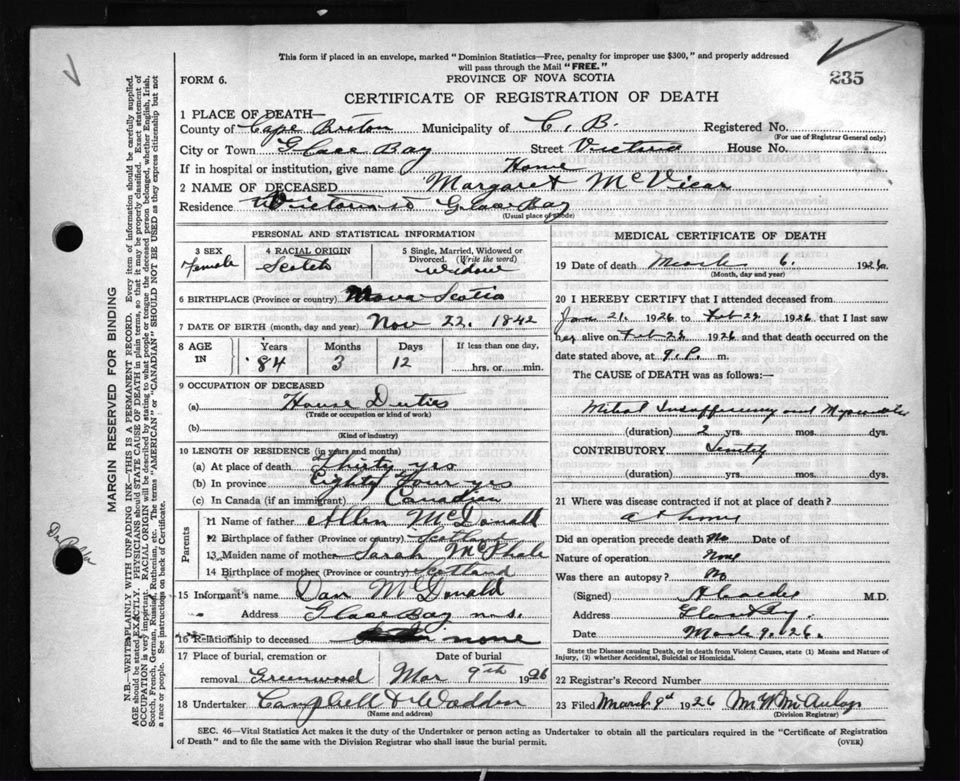 This form if placed in an envelope, marked "Dominion Statistics—Free, penalty for improper use $300," and properly addressed
will pass through the Mail "FREE."
FORM 6.
PROVINCE OF NOVA SCOTIA
235
CERTIFICATE OF REGISTRATION OF DEATH
1 PLACE OF DEATH—
County of Cape Breton Municipality of C. B. Registered No.
(For use of Registrar General only)
City or Town Glace Bay Street Victoria House No.
If in hospital or institution, give name Home
2 NAME OF DECEASED Margaret McVicar
Residence Victoria St Glace Bay
(Usual place of abode)
PERSONAL AND STATISTICAL INFORMATION
3 SEX Female
4 RACIAL ORIGIN Scotch
5 Single, Married, Widowed or Divorced. (Write the word) Widow
6 BIRTHPLACE (Province or country) Nova Scotia
7 DATE OF BIRTH (month, day and year) Nov 22. 1842
8 AGE IN Years 84 Months 3 Days 12 If less than one day, hrs. or min.
9 OCCUPATION OF DECEASED
(a) House Duties
(Trade or occupation or kind of work)
(b)
(Kind of industry)
10 LENGTH OF RESIDENCE (in years and months)
(a) At place of death Thirty yrs
(b) In province Eighty Four yrs
(c) In Canada (if an immigrant) Canadian
Parents
11 Name of father Allen McDonald
12 Birthplace of father (Province or country) Scotland
13 Maiden name of mother Sarah McPhale
14 Birthplace of mother (Province or country) Scotland
15 Informant's name Dan McDonald
Address Glace Bay N.S.
16 Relationship to deceased none
17 Place of burial, cremation or removal Greenwood
Date of burial Mar 9th 1926
18 Undertaker Campbell & Wadden
(Name and address)
MEDICAL CERTIFICATE OF DEATH
19 Date of death March 6. 1926.
(Month, day and year)
20 I HEREBY CERTIFY that I attended deceased from
Jan 21. 1926 to Feb 22 1926 that I last saw
her alive on Feb 22 1926 and that death occurred on the
date stated above, at 9. P. m.
The CAUSE of DEATH was as follows:—
Mitral Insufficiency and
(duration) 2 yrs. mos. dys.
CONTRIBUTORY Senility
(duration) yrs. mos. dys.
21 Where was disease contracted if not at place of death?
at home
Did an operation precede death No Date of
Nature of operation None
Was there an autopsy? No
(Signed) M.D.
Address Glace Bay.
Date March 9. 26.
State the Disease causing Death, or in death from Violent Causes, state (1) Means and Nature of
Injury, (2) whether Accidental, Suicidal or Homicidal.
22 Registrar's Record Number
23 Filed March 9th 1926
(Division Registrar)
SEC. 46—Vital Statistics Act makes it the duty of the Undertaker or person acting as Undertaker to obtain all the particulars required in the "Certificate of Registration
of Death" and to file the same with the Division Registrar who shall issue the burial permit.
(OVER)
MARGIN RESERVED FOR BINDING
N.B.—WRITE PLAINLY WITH UNFADING INK—THIS IS A PERMANENT RECORD. Every item of information should be carefully supplied.
AGE should be stated EXACTLY. PHYSICIANS should STATE CAUSE OF DEATH in plain terms, so that it may be properly classified. Exact statement of
OCCUPATION is very important. RACIAL ORIGIN will be described by stating to what people or tongue the deceased person belonged, whether English, Irish,
Scotch, French, German, Russian, Ruthenian, etc. The terms "AMERICAN" or "CANADIAN" SHOULD NOT BE USED as they express citizenship but not
a race or people. See instructions on back of Certificate.